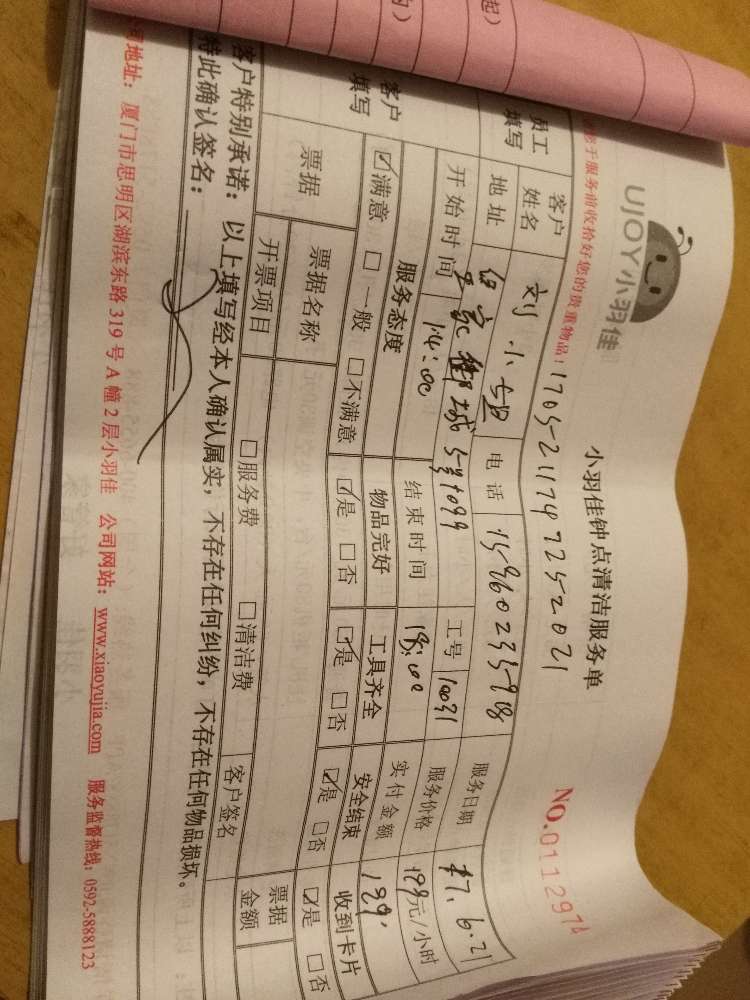 起）
的）
UJOY小羽佳
小羽佳钟点清洁服务单
NO.0112974
于服务前收拾好您的贵重物品！
1705-21174725 2021
员工填写
客户姓名 刘小姐 电话 服务日期 17.6.21
地址 5号1099 工号 10031 服务价格 199元/小时
开始时间 14:00 结束时间 18:00 实付金额 199.
客户填写
服务态度 物品完好 工具齐全 安全结束 收到卡片
☑满意 □一般 □不满意 ☑是 □否 ☑是 □否 ☑是 □否 ☑是 □否
票据 票据名称 □服务费 □清洁费 票据金额
开票项目 客户签名
客户特别承诺：以上填写经本人确认属实，不存在任何纠纷，不存在任何物品损坏。
特此确认签名：
司地址：厦门市思明区湖滨东路 319 号 A 幢 2 层小羽佳 公司网站：www.xiaoyujia.com 服务监督热线：0592-5888123